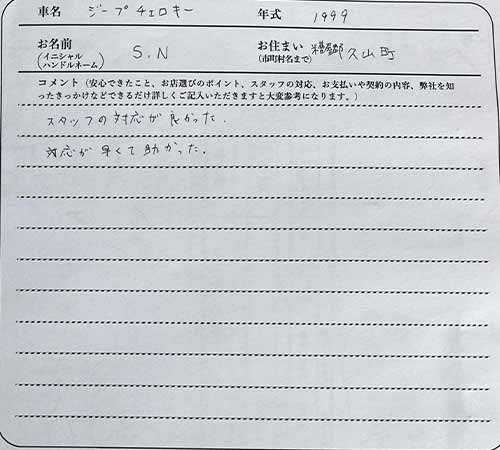 車名 ジープチェロキー 年式 1999
お名前 S.N お住まい 糟屋郡久山町
(イニシャル ハンドルネーム) (市町村名まで)
コメント(安心できたこと、お店選びのポイント、スタッフの対応、お支払いや契約の内容、弊社を知
ったきっかけなどできるだけ詳しくご記入いただきますと大変参考になります。)
スタッフの対応が良かった.
対応が早くて助かった.